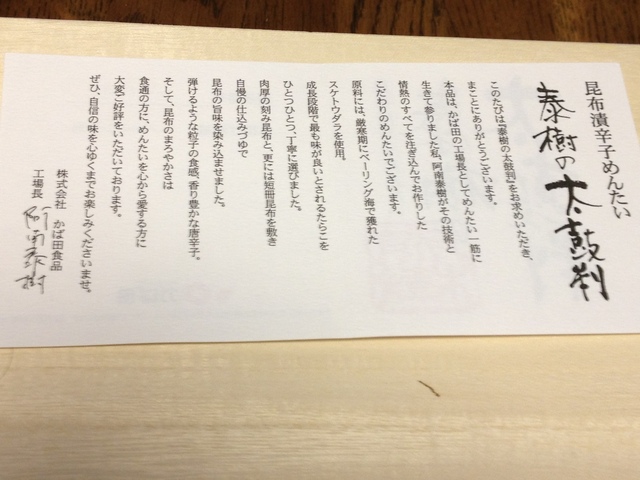 昆布漬辛子めんたい
泰樹の太鼓判
このたびは『泰樹の太鼓判』をお求めいただき、
まことにありがとうございます。
本品は、かば田の工場長としてめんたい一筋に
生きて参りました私、阿南泰樹がその技術と
情熱のすべてを注ぎ込んでお作りした
こだわりのめんたいでございます。
原料には、厳寒期にベーリング海で獲れた
スケトウダラを使用。
成長段階で最も味が良いとされるたらこを
ひとつひとつ、丁寧に選びました。
肉厚の刻み昆布と、更には短冊昆布を敷き
自慢の仕込みづゆで
昆布の旨味を染み込ませました。
弾けるような粒子の食感、香り豊かな唐辛子。
そして、昆布のまろやかさは
食通の方に、めんたいを心から愛する方に
大変ご好評をいただいております。
ぜひ、自信の味を心ゆくまでお楽しみくださいませ。
株式会社 かば田食品
工場長 阿南泰樹